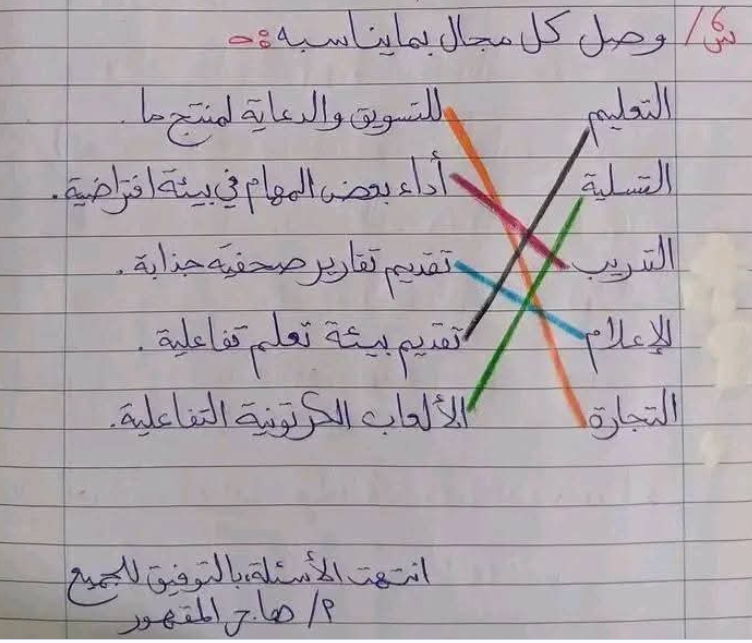 س6/ وصل كل مجال بما يناسبه :-
التعليم للتسويق والدعاية لمنتج ما .
التسلية أداء بعض المهام في بيئة افتراضية .
التدريب تقديم تقارير صحفية جذابة .
الإعلام تقديم بيئة تعلم تفاعلية .
التجارة الألعاب الكرتونية التفاعلية .
انتهت الأسئلة، بالتوفيق للجميع
م/ المقهور